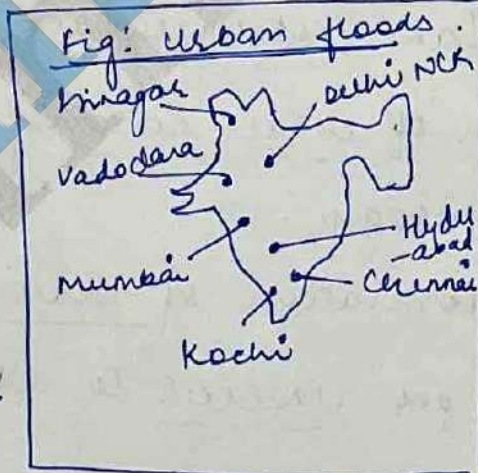 Fig: Urban floods.
Srinagar
Delhi NCR
Vadodara
Mumbai
Hyder
-abad
Chennai
Kochi